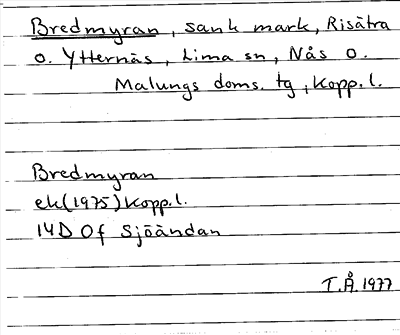 Bredmyran, sank mark, Risätra
o. Ytternäs, Lima sn, Nås o.
Malungs doms. tg, Kopp. l.
Bredmyran
ek (1975) Kopp. l.
14D 0f Sjöändan
T.Å. 1977